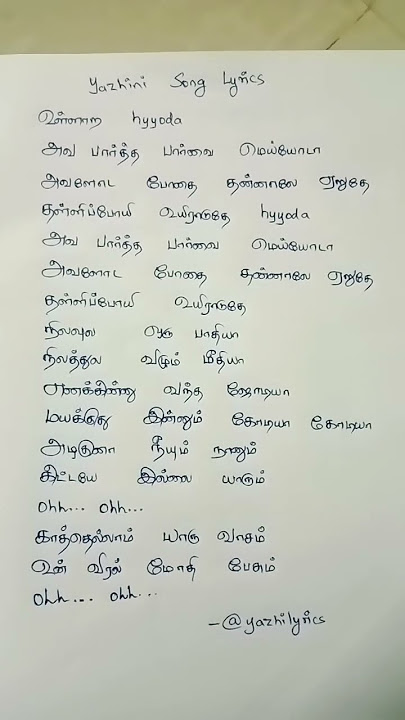 Yazhini Song Lyrics
உள்ளாற hyyoda
அவ பார்த்த பார்வை மெய்யோடா
அவளோட போதை தன்னாலே ஏறுதே
தள்ளிப்போயி உயிராடுதே hyyoda
அவ பார்த்த பார்வை மெய்யோடா
அவளோட போதை தன்னாலே ஏறுதே
தள்ளிப்போயி உயிராடுதே
நிலவுல ஒரு பாதியா
நிலத்துல விழும் மீதியா
எனக்கின்னு வந்த ஜோடியா
மயக்குது இன்னும் கோடியா கோடியா
நீயும் நானும்
கிட்டயே இல்லை யாரும்
Ohh... Ohh...
காத்தெல்லாம் யாரு வாசம்
உன் விரல் மோதி பேசும்
Ohh... Ohh...
-@yazhilyrics